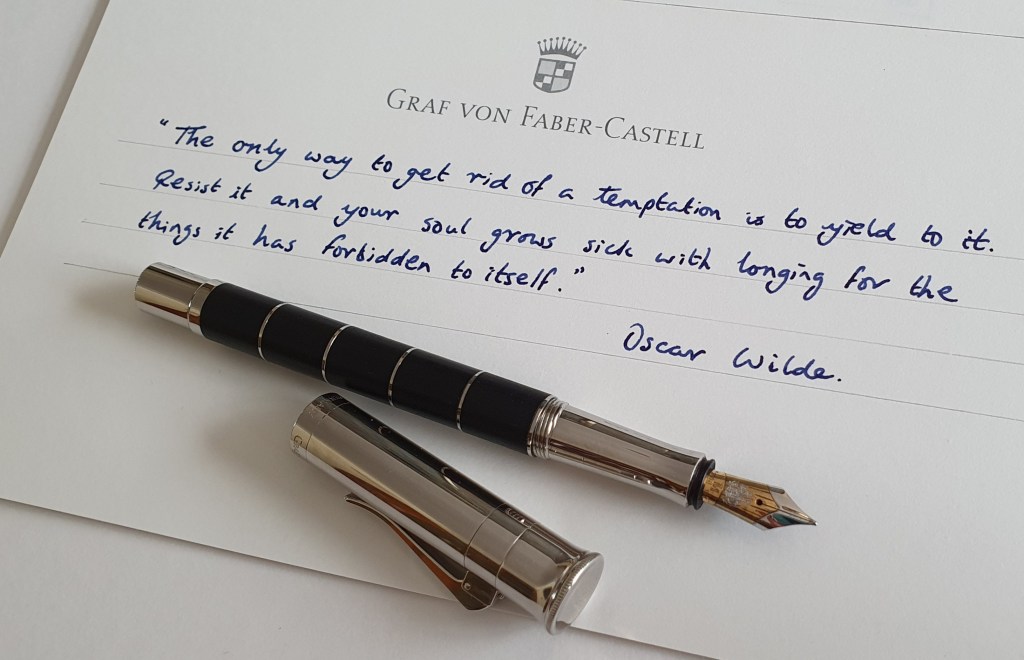 GRAF VON FABER-CASTELL
"The only way to get rid of a temptation is to yield to it.
Resist it and your soul grows sick with longing for the
things it has forbidden to itself."
Oscar Wilde.